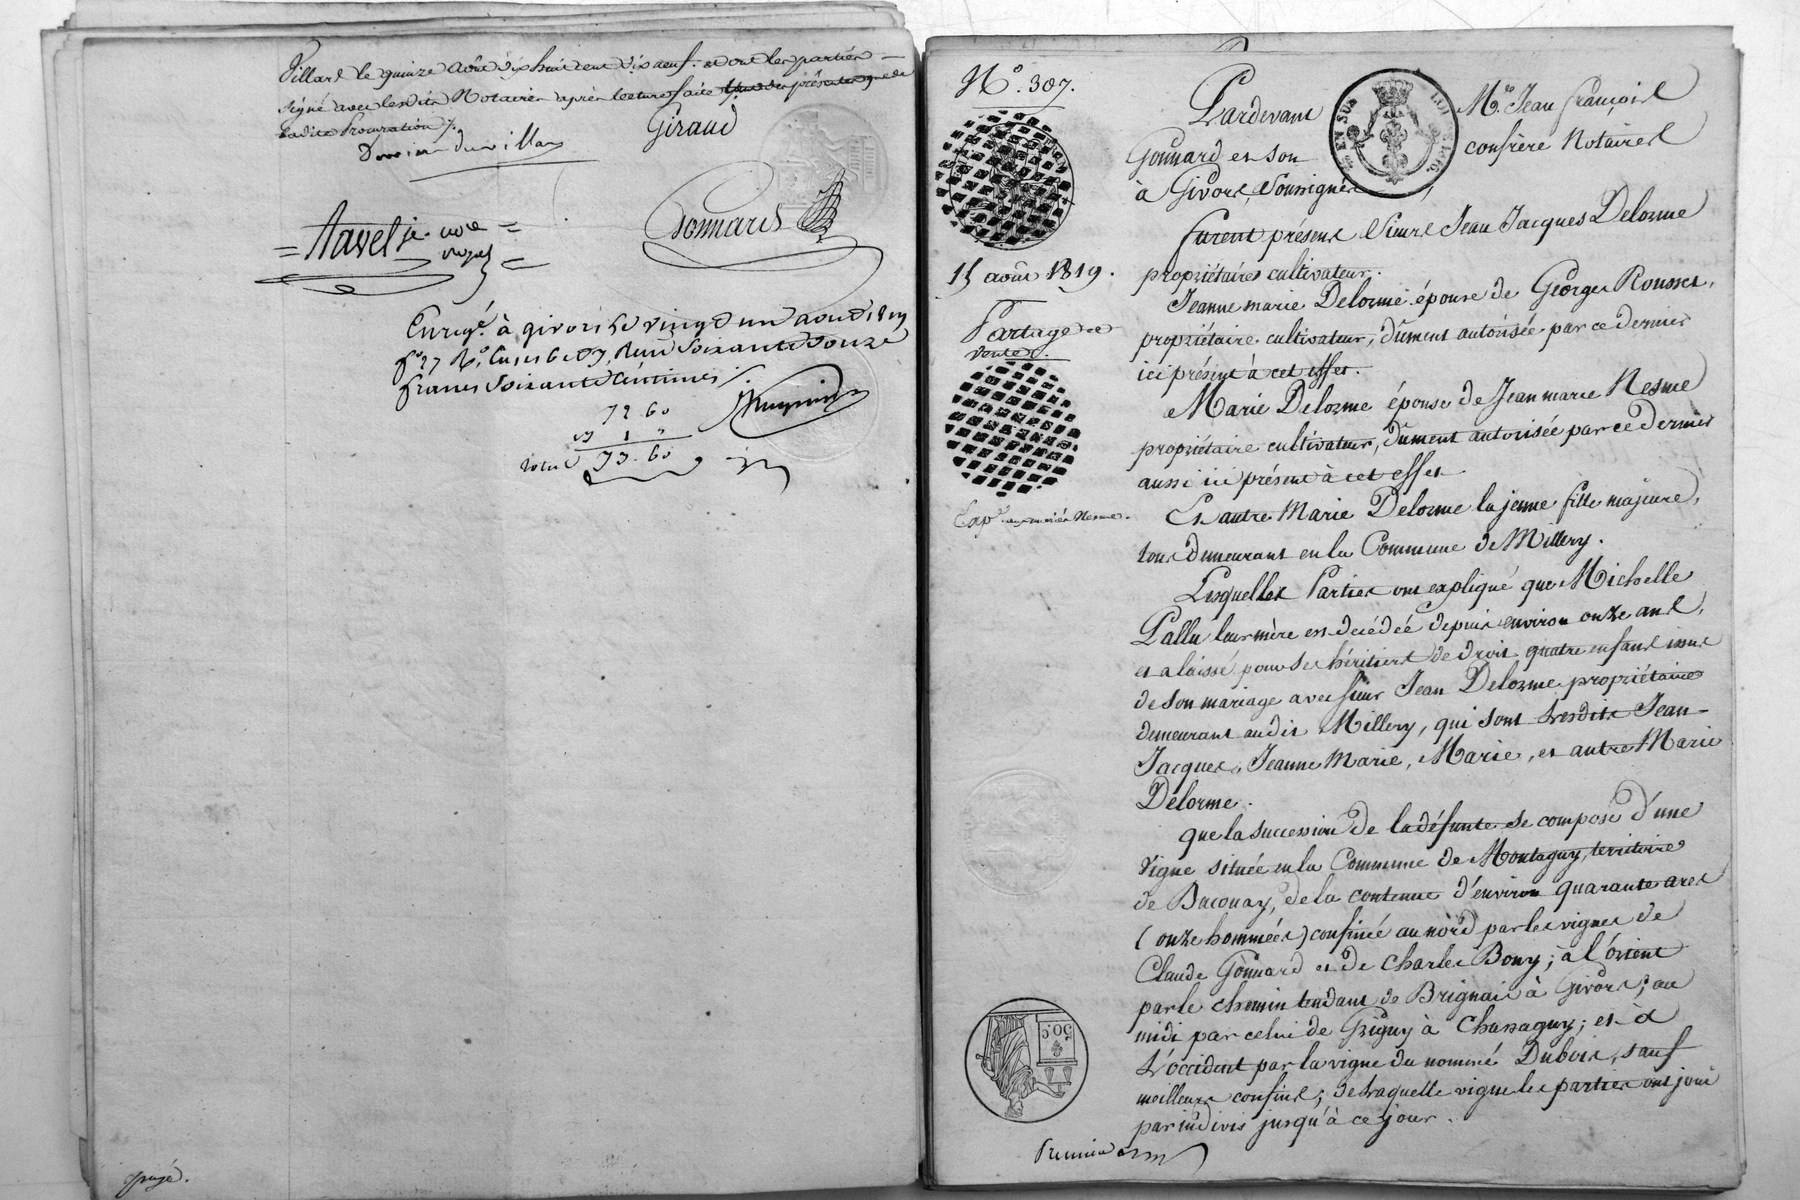 Villard le quinze août dix huit cent dix neuf. et ont les parties
signé avec lesdits Notaires après lecture faite
ladite Procuration /.
Giraud
Duvillard
Gonnard
= Navel je. =
Enregé. à givors le vingt un aout 1819
fo. 27 Ro. Cases 6 et 7, Reçu Soixante douze
francs Soixante Centimes /.
72 60
1 "
total 73. 60
No. 387.
15 août 1819.
Partage et
vente.
Expée. aux mariés Nesme.
Pardevant Me. Jean François
Gonnard et son confrère Notaires
à Givors, Soussignés,
furent présens Sieur Jean Jacques Delorme
propriétaires cultivateur.
Jeanne marie Delorme épouse de Georges Rousset,
propriétaire cultivateur, dûment autorisée par ce dernier
ici présent à cet effet.
Marie Delorme épouse de Jean marie Nesme
propriétaire cultivateur, dûment autorisée par ce dernier
aussi ici présent à cet effet
Et autre Marie Delorme la jeune fille majeure,
tous demeurant en la Commune de Millery.
Lesquelles Parties ont expliqué que Michelle
Pallu leur mère est décédée depuis environ onze ans,
et a laissé pour ses héritiers de droit quatre enfans issus
de son mariage avec sieur Jean Delorme propriétaire
demeurant audit Millery, qui sont lesdits Jean-
Jacques, Jeanne Marie, Marie, et autre Marie
Delorme.
que la succession de la défunte se compose d'une
vigne située en la Commune de Montagny, territoire
de Bacouay, de la contenue d'environ quarante ares
(onze hommées) confinée au nord par les vignes de
Claude Gonnard et de Charles Bony; à l'orient
par le chemin tendant de Brignais à Givors; au
midi par celui de Grigny à Chassagny; et à
l'occident par la vigne du nommé Dubois, sauf
meilleurs confins; de laquelle vigne les parties ont joui
par indivis jusqu'à ce jour.
50 c.